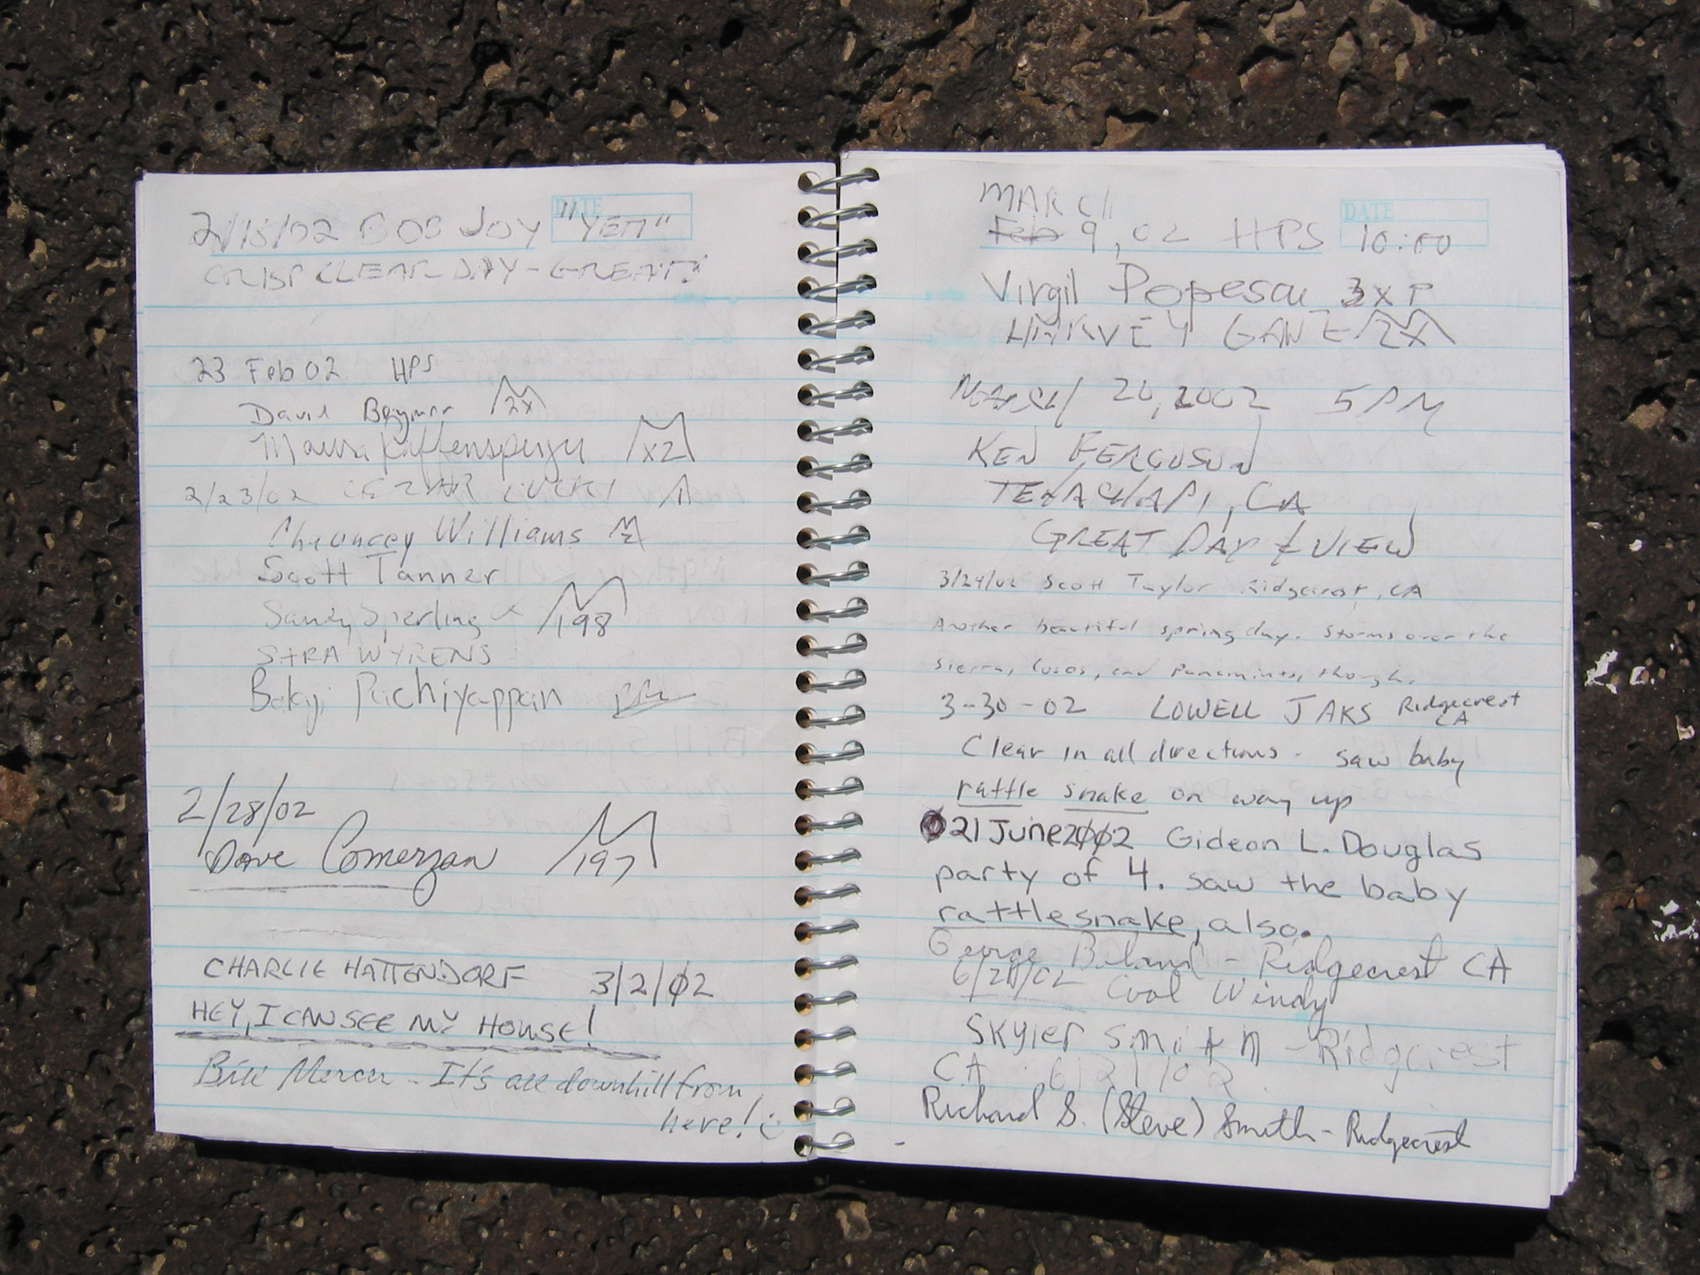 DATE
2/15/02 BOB JOY "YETI"
CRISP CLEAR DAY - GREAT!
23 Feb 02 HPS
David 2X
Maura Raffensperger X2
2/23/02
Chauncey Williams
Scott Tanner
Sandy Sperling 198
SARA WYRENS
Pachiyappan
2/28/02
Dave Comerzan 197
CHARLIE HATTENDORF 3/2/02
HEY, I CAN SEE MY HOUSE!
Bill Mercer - It's all downhill from
here!
MARCH
DATE
Feb 9, 02 HPS 10:00
Virgil Popescu 3X P
HARVEY GANZ 2X
March 20, 2002 5 PM
KEN FERGUSON
TEHACHAPI, CA
GREAT DAY & VIEW
3/24/02 Scott Taylor Ridgecrest, CA
Another beautiful spring day. Storms over the
Sierra, Cosos, and Panamints, though.
3-30-02 LOWELL JAKS Ridgecrest
CA
Clear in all directions - saw baby
rattle snake on way up
21 June 2002 Gideon L. Douglas
party of 4. saw the baby
rattlesnake, also.
George - Ridgecrest CA
Cool Windy
Skyler Smith - Ridgecrest
CA 6/21/02
Richard S. (Steve) Smith - Ridgecrest